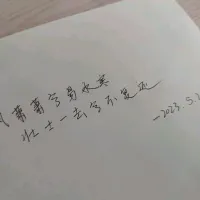 萧萧兮易水寒
壮士一去兮不复还
—2023.5.